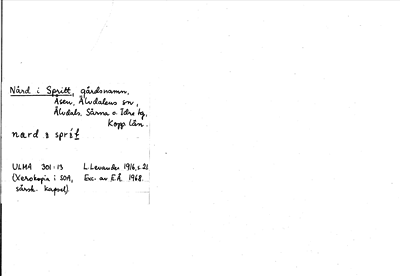 Nård i Spritt, gårdsnamn.
Åsen, Älvdalens sn,
Älvdals. Särna o. Idre tg.
Kopp. län.
nærd i sprit
ULMA 301:13 L. Levander 1916, s. 21
(Xerokopia i SOA, Exc. av E.Å. 1968.
särsk. kapsel)